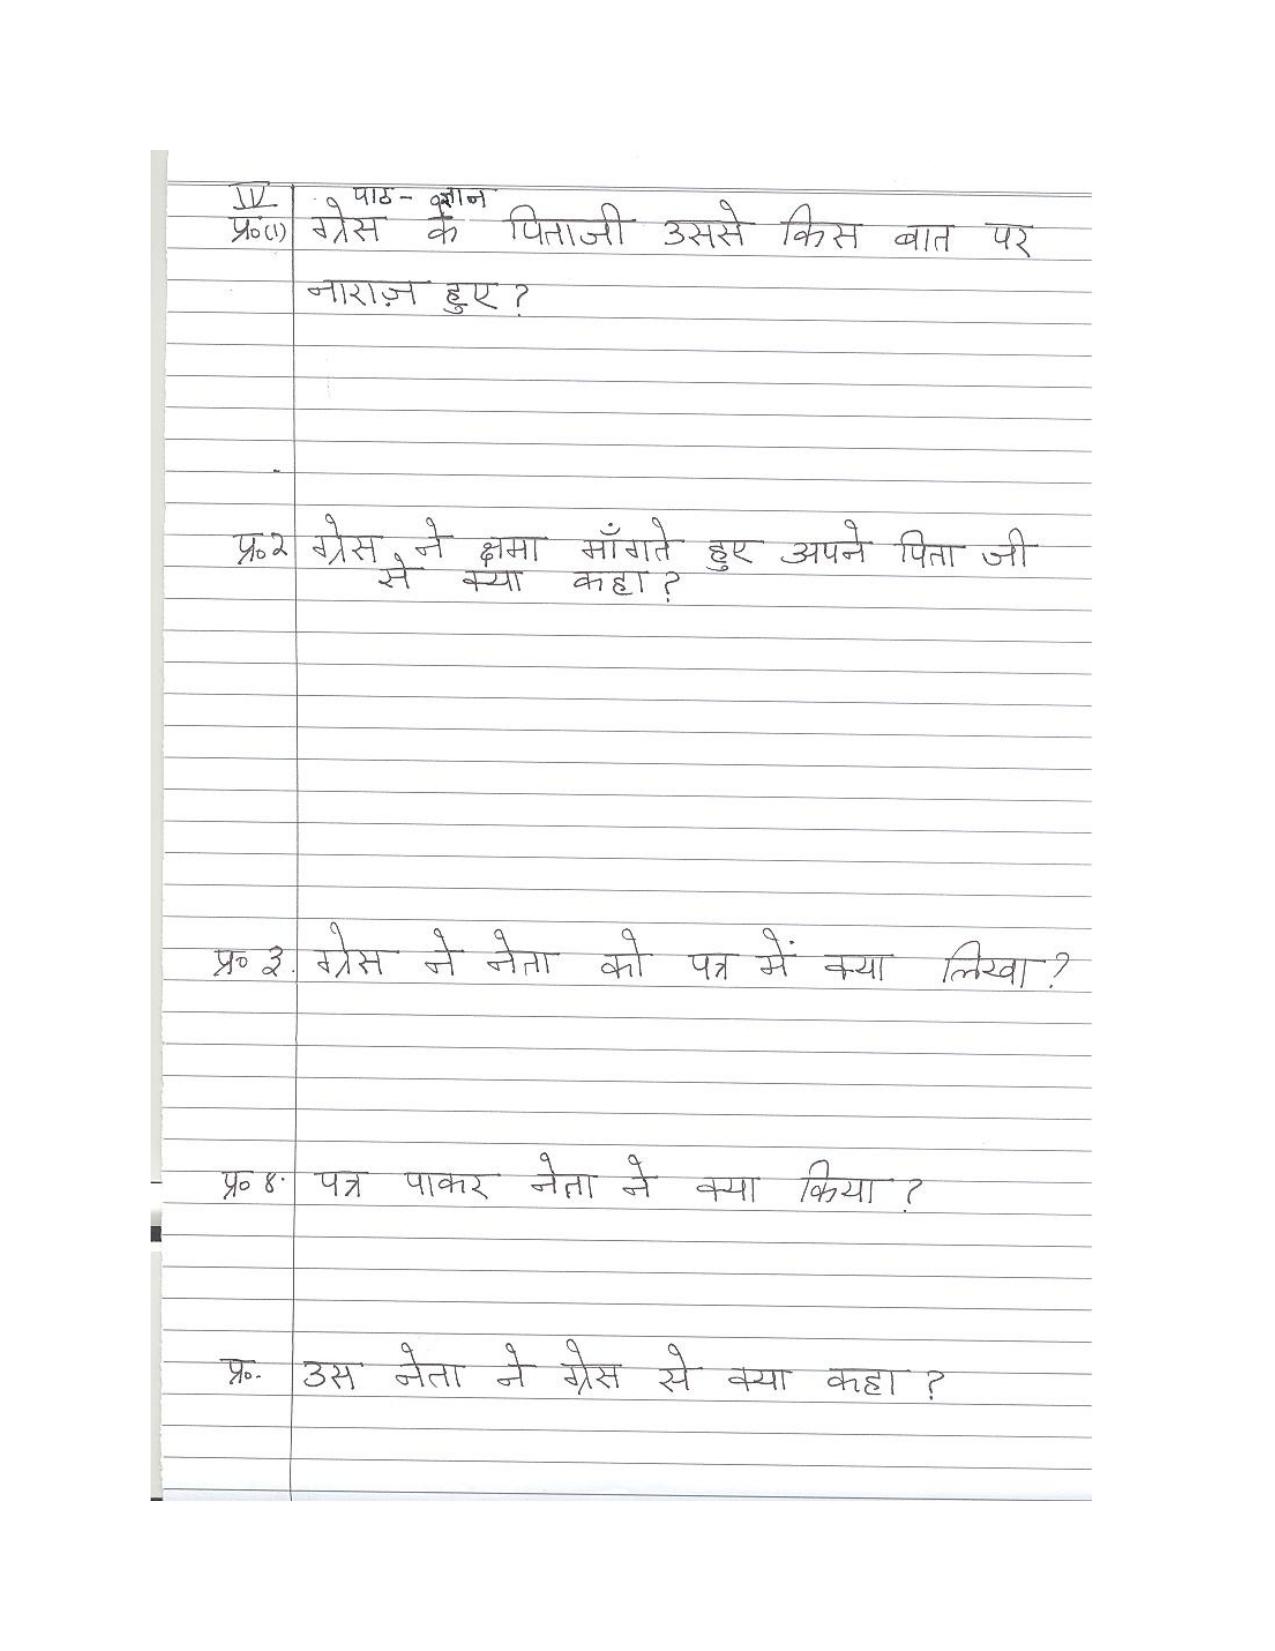 IV पाठ - ज्ञान
प्र०(1) ग्रेस के पिताजी उससे किस बात पर
नाराज़ हुए ?
प्र०२ ग्रेस ने क्षमा माँगते हुए अपने पिता जी
से क्या कहा ?
प्र० ३. ग्रेस ने नेता को पत्र में क्या लिखा ?
प्र० ४. पत्र पाकर नेता ने क्या किया ?
प्र०. उस नेता ने ग्रेस से क्या कहा ?